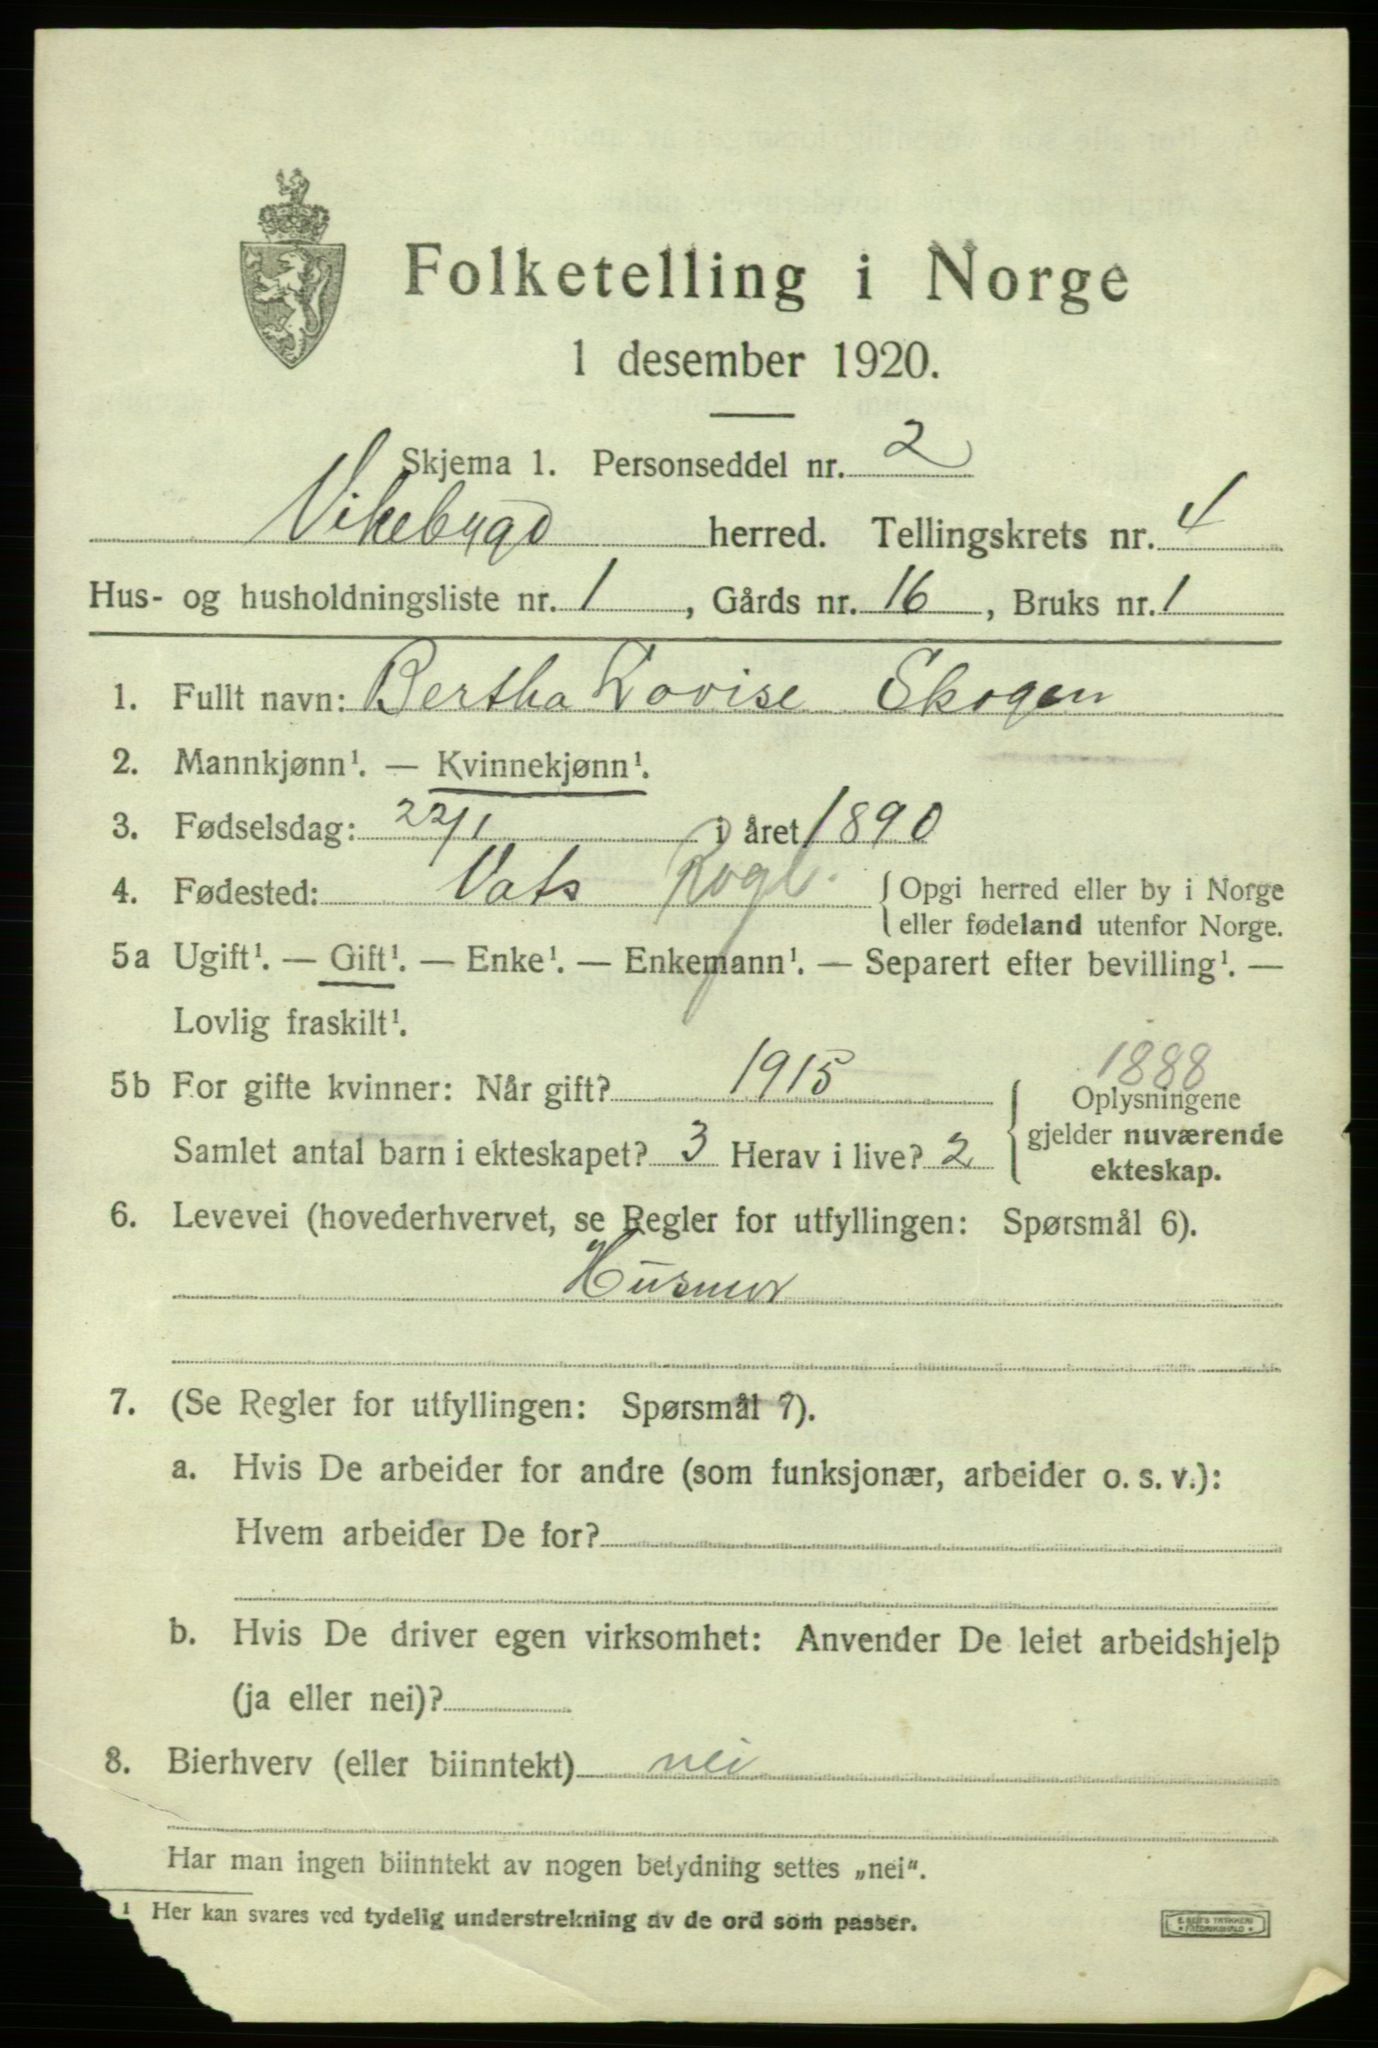 Folketelling i Norge
1 desember 1920.
Skjema 1. Personseddel nr. 2
Vikebygd herred. Tellingskrets nr. 4
Hus- og husholdningsliste nr. 1, Gårds nr. 16, Bruks nr. 1
1. Fullt navn: Bertha Lovise Skogen
2. Mannkjønn¹. — Kvinnekjønn¹.
3. Fødselsdag: 22/1 i året 1890
4. Fødested: Vats Rogl. { Opgi herred eller by i Norge
eller fødeland utenfor Norge.
5a Ugift¹. — Gift¹. — Enke¹. — Enkemann¹. — Separert efter bevilling¹. —
Lovlig fraskilt¹.
1888
5b For gifte kvinner: Når gift? 1915 { Oplysningene
gjelder nuværende
Samlet antal barn i ekteskapet? 3 Herav i live? 2 ekteskap.
6. Levevei (hovederhvervet, se Regler for utfyllingen: Spørsmål 6).
Husmor
7. (Se Regler for utfyllingen: Spørsmål 7).
a. Hvis De arbeider for andre (som funksjonær, arbeider o. s. v.):
Hvem arbeider De for?
b. Hvis De driver egen virksomhet: Anvender De leiet arbeidshjelp
(ja eller nei)?
8. Bierhverv (eller biinntekt) nei
Har man ingen biinntekt av nogen betydning settes „nei".
¹ Her kan svares ved tydelig understrekning av de ord som passer.